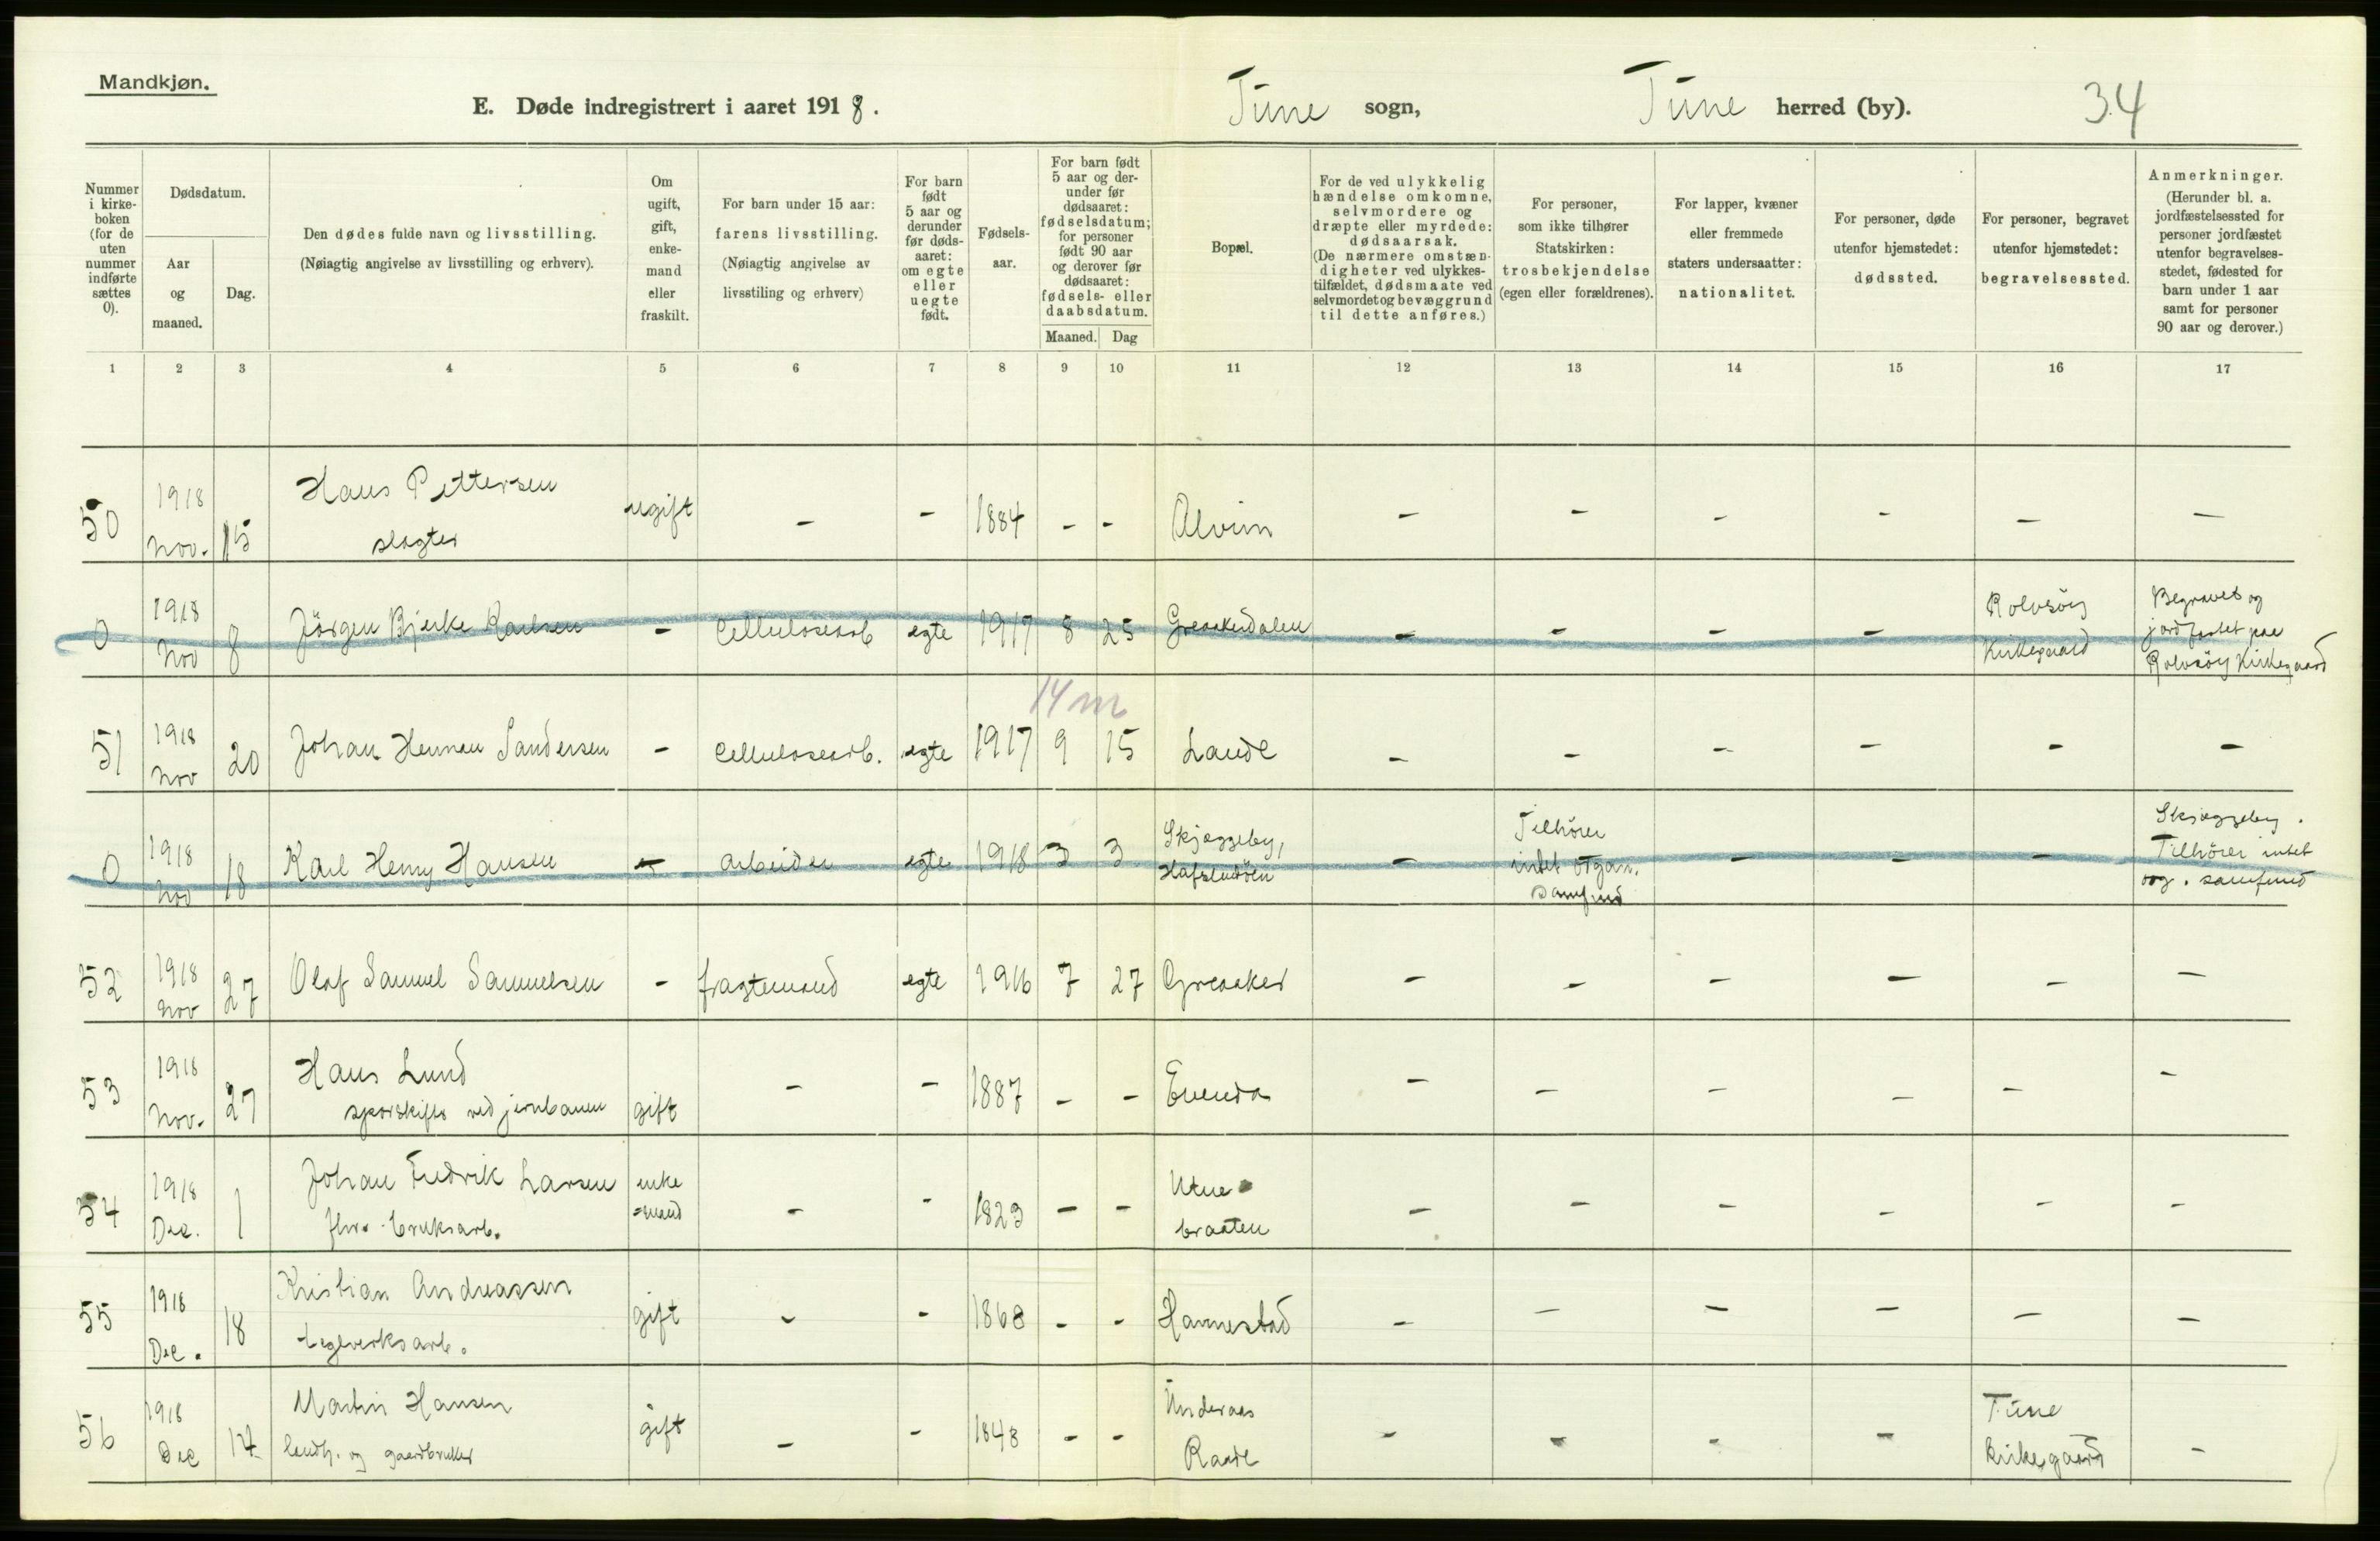 Mandkjøn.
E. Døde indregistrert i aaret 1918.
Tune sogn,
Tune herred (by).
34
Nummer i kirke-boken (for de uten nummer indførte sættes 0).
Dødsdatum.
Aar og maaned.
Dag.
Den dødes fulde navn og livsstilling.
(Nøiagtig angivelse av livsstilling og erhverv).
Om ugift, gift, enke-mand eller fraskilt.
For barn under 15 aar: farens livsstilling.
(Nøiagtig angivelse av livsstiling og erhverv)
For barn født 5 aar og derunder før døds-aaret: om egte eller uegte født.
Fødsels-aar.
For barn født 5 aar og der-under før dødsaaret: fødselsdatum; for personer født 90 aar og derover før dødsaaret: fødsels- eller daabsdatum.
Maaned.
Dag
Bopæl.
For de ved ulykkelig hændelse omkomne, selvmordere og dræpte eller myrdede: dødsaarsak.
(De nærmere omstæn-digheter ved ulykkes-tilfældet, dødsmaate ved selvmordet og bevæggrund til dette anføres.)
For personer, som ikke tilhører Statskirken: trosbekjendelse (egen eller forældrenes).
For lapper, kvæner eller fremmede staters undersaatter: nationalitet.
For personer, døde utenfor hjemstedet: dødssted.
For personer, begravet utenfor hjemstedet: begravelsessted.
Anmerkninger.
(Herunder bl. a. jordfæstelsessted for personer jordfæstet utenfor begravelses-stedet, fødested for barn under 1 aar samt for personer 90 aar og derover.)
1 2 3 4 5 6 7 8 9 10 11 12 13 14 15 16 17
50 1918 Nov. 15 Hans Pettersen slagter ugift - - 1884 - - Alvim - - - - - -
0 1918 Nov 8 Jörgen Bjerke Karlsen - Cellulosearb egte 1917 8 25 Greaakerdalen - - - - Rolvsöy Kirkegaard Begravet og jordfæstet paa Rolvsöy Kirkegaard
14 m
51 1918 Nov 20 Johan Herman Sandersen - Cellulosearb. egte 1917 9 15 Lande - - - - - -
0 1918 Nov 18 Karl Henry Hansen - Arbeider egte 1918 3 3 Skjæggeby, Hafslundöen - Tilhörer intet organ. Samfund - - - Skjæggeby. Tilhörer intet org. samfund
52 1918 Nov 27 Olaf Samuel Samuelsen - fragtemand egte 1916 7 27 Greaaker - - - - - -
53 1918 Nov. 27 Hans Lund sporskifter ved jernbanen gift - - 1887 - - Evenda - - - - - -
54 1918 Dec. 1 Johan Fredrik Larsen fhv. bruksarb. enke =mand - - 1823 - - braaten - - - - - -
55 1918 Dec. 18 Kristian Andreassen teglverksarb. gift - - 1868 - - Hannestad - - - - - -
56 1918 Dec 14 Martin Hansen landh. og gaardbruker gift - - 1848 - - Underaas Raade - - - - Tune Kirkegaard -